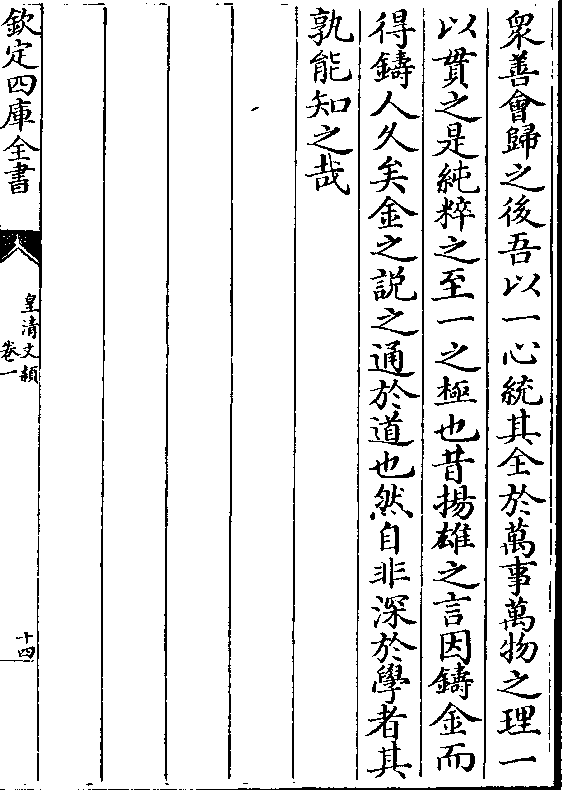 衆善會歸之後吾以一心統其全於萬事萬物之理一
以貫之是純粹之至一之極也昔揚雄之言因鑄金而
得鑄人久矣金之説之通於道也然自非深於學者其
孰能知之哉
欽定四庫全書
皇清文穎
卷一
十四